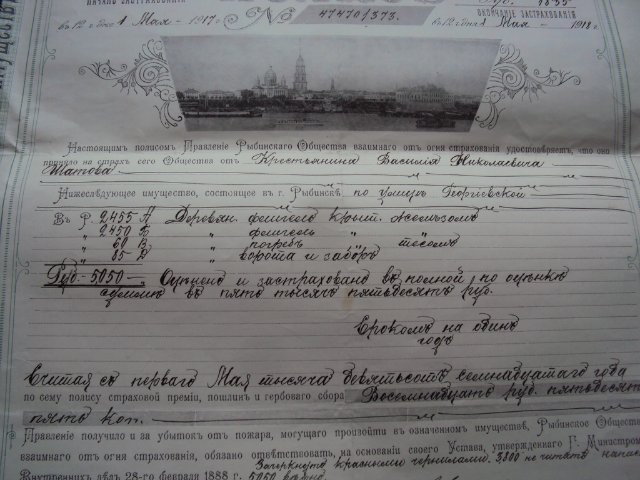 НАЧАЛО ЗАСТРАХОВАНІЯ
ОКОНЧАНІЕ ЗАСТРАХОВАНІЯ
въ 12 ч. дня 1 Мая - 1917 г. № 47470/373. въ 12 ч. дня 1 Мая - 1918 г.
Настоящимъ полисомъ Правленіе Рыбинскаго Общества взаимнаго отъ огня страхованія удостовѣряетъ, что оно
приняло на страхъ сего Общества отъ Крестьянина Василія Николаевича
Шатова
Нижеслѣдующее имущество, состоящее въ г. Рыбинскѣ, по улицѣ Георгіевской
Въ Р. 2455 А Деревян. флигель крыт. желѣзомъ
" 2450 Б " флигель " "
" 60 В " погребъ " тесомъ
" 85 Д " ворота и заборъ
Руб. 5050 — Оцѣнено и застраховано въ полной по оцѣнкѣ
суммѣ въ пять тысячъ пятьдесятъ руб.
Срокомъ на одинъ
годъ
Считая съ перваго Мая тысяча девятьсотъ семнадцатаго года
по сему полису страховой преміи, пошлин и гербоваго сбора Восемнадцать руб. пятьдесятъ
пять коп.
Правленіе получило и за убытокъ отъ пожара, могущаго произойти въ означенномъ имуществѣ, Рыбинское Общество
взаимнаго отъ огня страхованія, обязано отвѣтствовать, на основаніи своего Устава, утвержденнаго Г. Министромъ
Зачеркнуто красными чернилами 3,800 не читать
Внутреннихъ дѣлъ 28-го февраля 1888 г. 5050 вѣрно